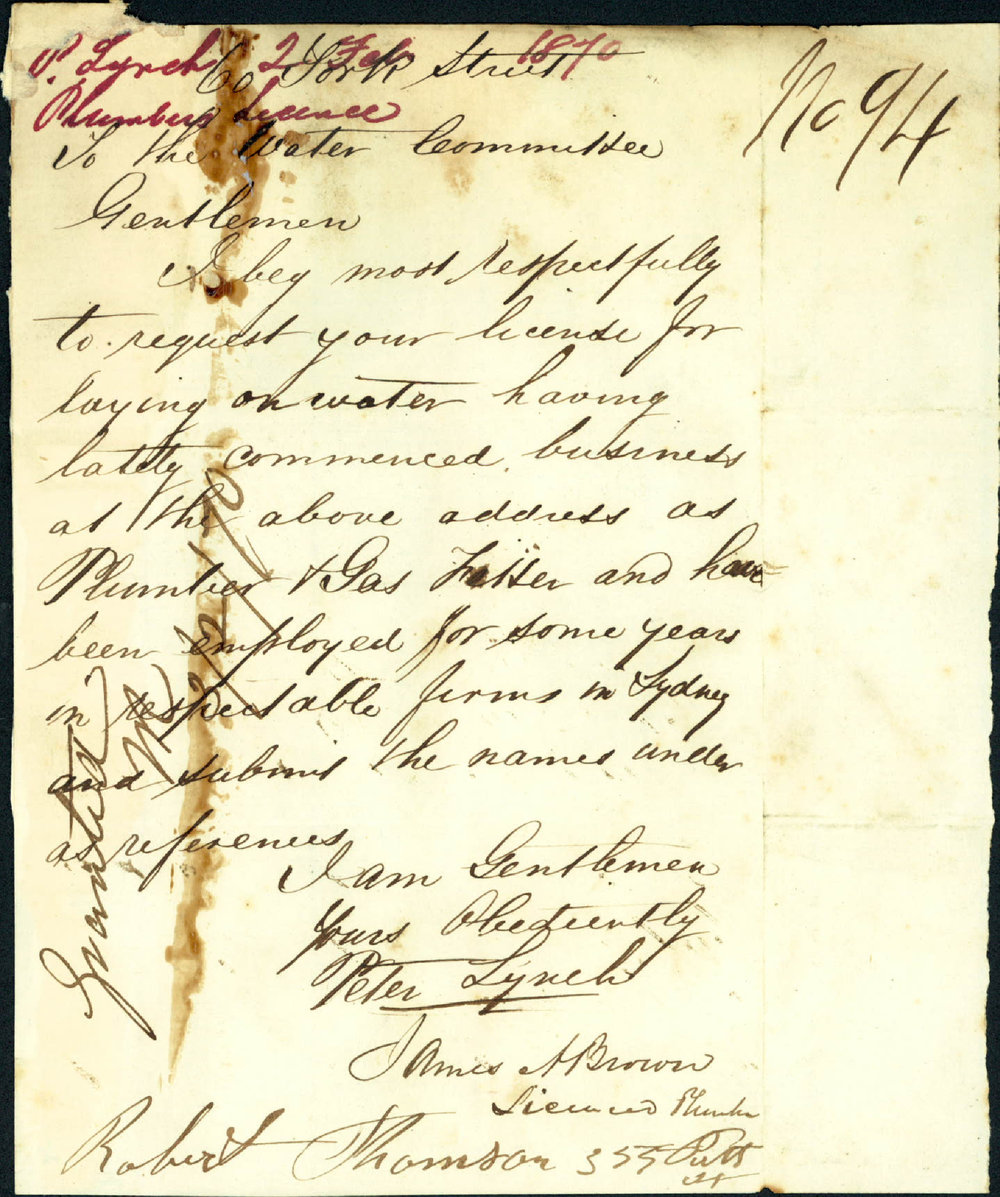 P. Lynch 2 Feb 1870
Plumbers Licence
No 94
60 York Street
To the Water Committee
Gentlemen
I beg most respectfully
to request your license for
laying on water having
lately commenced business
at the above address as
Plumber & Gas Fitter and have
been employed for some years
in respectable firms in Sydney
and submit the names under
as references
I am Gentlemen
Yours Obediently
Peter Lynch
James A Brown
Licenced Plumber
Robert Thomson 355 Pitt
St
Granted
2/2/70